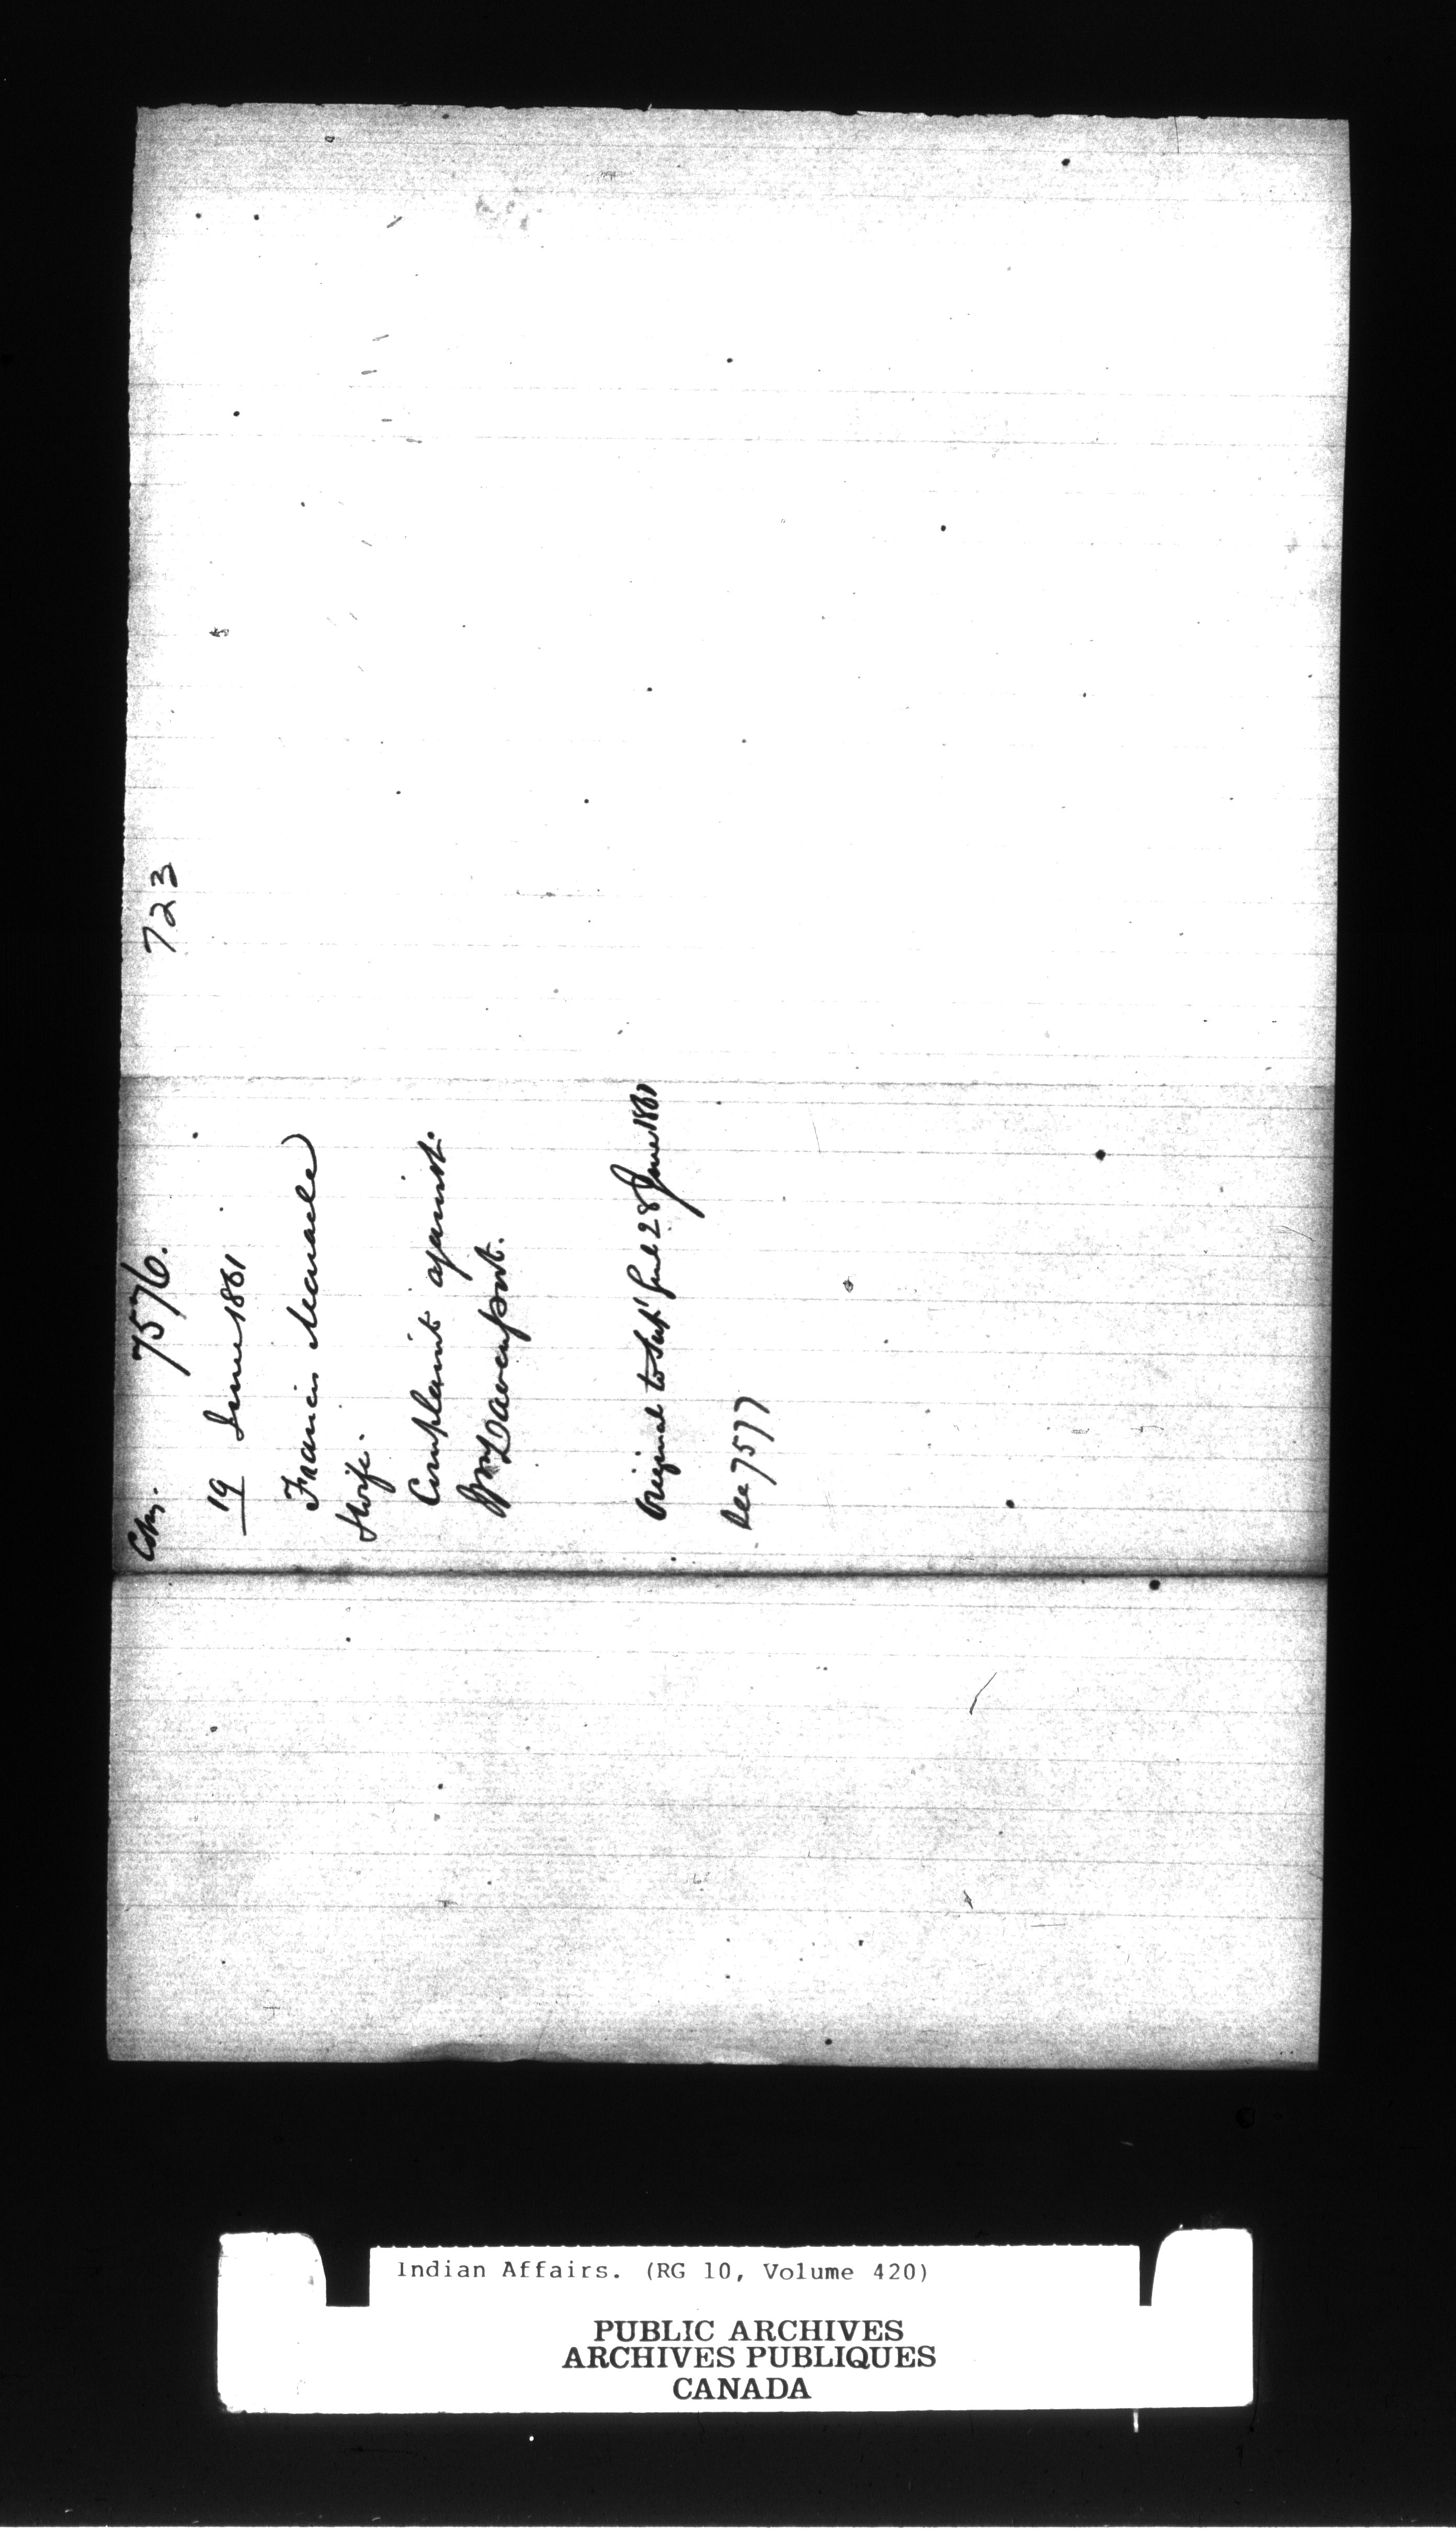 723
7576.
19 June 1861
Francis
& wife.
Complaint against
Wm Davenport.
Original to Supt Genl 28 June 1861
See 7577
Indian Affairs. (RG 10, Volume 420)
PUBLIC ARCHIVES
ARCHIVES PUBLIQUES
CANADA